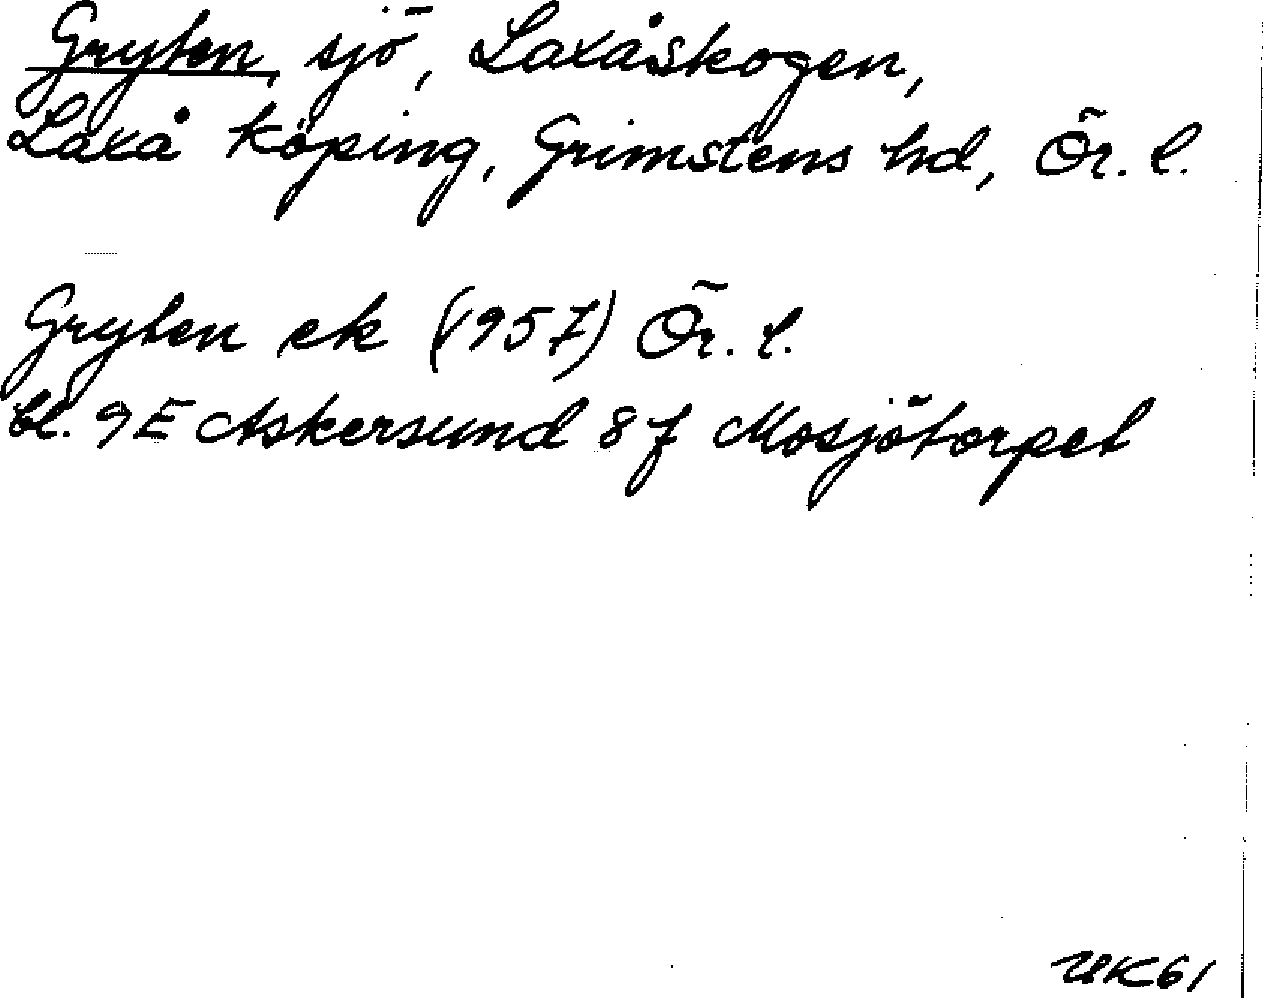 Gryten, sjö, Laxåskogen,
Laxå köping, Grimstens hd, Ör. l.
Gryten ek (1957) Ör. l.
bl. 9E Askersund 8f Mosjötorpet
UK61